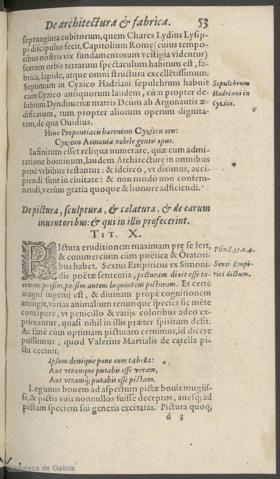 De architectura & fabrica. 53
septuaginta cubitorum, quem Chares Lydius Lysip-
pi discipulus fecit. Capitolium Romę (cuius tempo-
ribus nostris vix fundamentorum vestigia videntur)
sextum orbis terrarum spectaculum habitum est, fa-
brica, lapide, atque omni structura excellētissimum.
Septimum in Cyzico Hadriani sepulchrum habuit
cum Cyzico antiquorum laudem, cùm propter de-
lubrum Dyndimenæ matris Deûm ab Argonautis æ-
dificatum, tum propter aliorum operum dignita-
tem, de qua Ouidius.
Sepulchrum
Hadriani in
Cyzico.
Hinc Propontiacis hærentem Cyzicon oris:
Cyzicon Aemonia nobile gentis opus.
Infinitum esset reliqua numerare, quæ cum admi-
ratione hominum, laudem Architecturæ in omnibus
penè vrbibus testantur: & idcirco, vt diximus, acci-
piendi sunt in ciuitate: & non modo non contem-
nendi, verùm gratia quoque & honore adficiendi.
De pictura, sculptura, & cælatura, & de earum
inuentoribus: & qui in illis profecerint.
TIT. X.
PIctura eruditionem maximam præ se fert,
& commercium cùm poëtica & Oratori-
bus habet. Sextus Empiricus ex Simoni-
dis poëtæ sententia, picturam dixit esse ta-
centem poësim, poësim autem loquentem picturam. Et certè
magni ingenij est, & diuinam propè cognitionem
attingit, varias animalium rerumque species sic mēte
concipere, vt penicillo & varijs coloribus adeo ex-
primantur, quasi nihil in illis præter spiritum desit.
Ac sanè cùm optimam picturam cernimus, id dicere
possumus, quod Valerius Martialis de catella pi-
cta cecinit.
Plind. 35. c. 4.
Sexti Empi-
rici dictum.
Ipsam denique pone cum tabella:
Aut vtranque putabis esse veram,
Aut vtramq; putabis esse pictam.
Legimus bouem ad aspectum pictæ bouis mugijs-
se, & pictis vuis nonnullos fuisse deceptos, auesq; ad
pictam speciem sui generis excitatas. Pictura quoq;
d 5
Biblioteca de Galicia